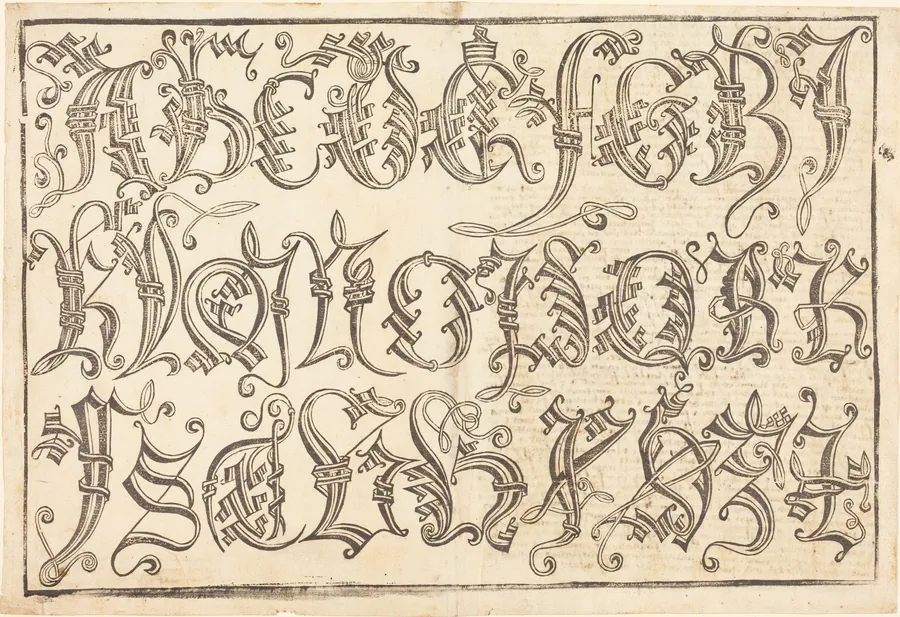 A B C D E F G H I
K L M N O P Q R R
S T X Z